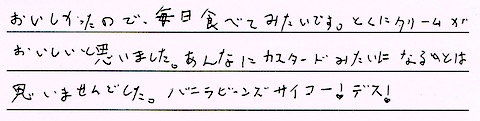 おいしかったので、毎日食べてみたいです。とくにクリームが
おいしいと思いました。あんなにカスタードみたいになるのとは
思いませんでした。バニラビーンズサイコー!デス!